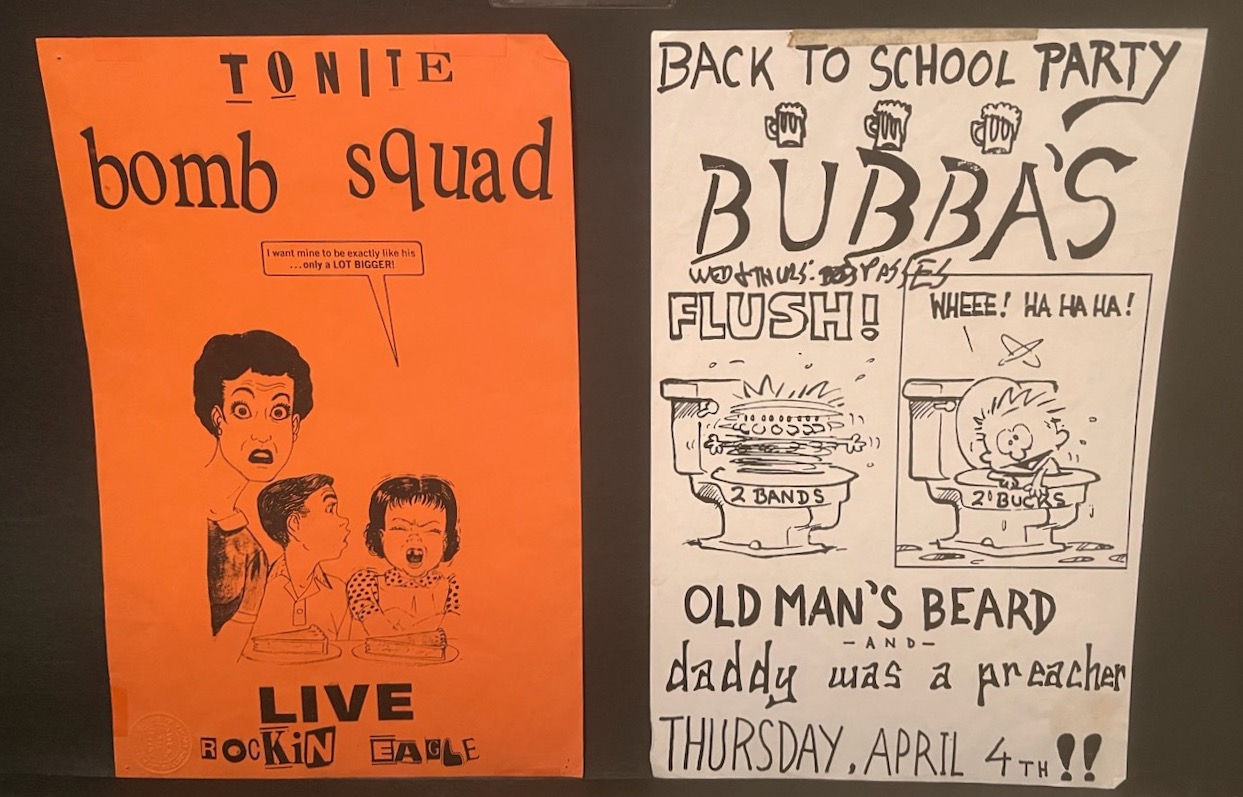 TONITE
bomb squad
I want mine to be exactly like his
...only a LOT BIGGER!
LIVE
ROCKIN EAGLE
BACK TO SCHOOL PARTY
BUBBA'S
WED & THURS:
FLUSH!
WHEEE! HA HA HA!
2 BANDS
2 BUCKS
OLD MAN'S BEARD
-AND-
daddy was a preacher
THURSDAY, APRIL 4TH!!